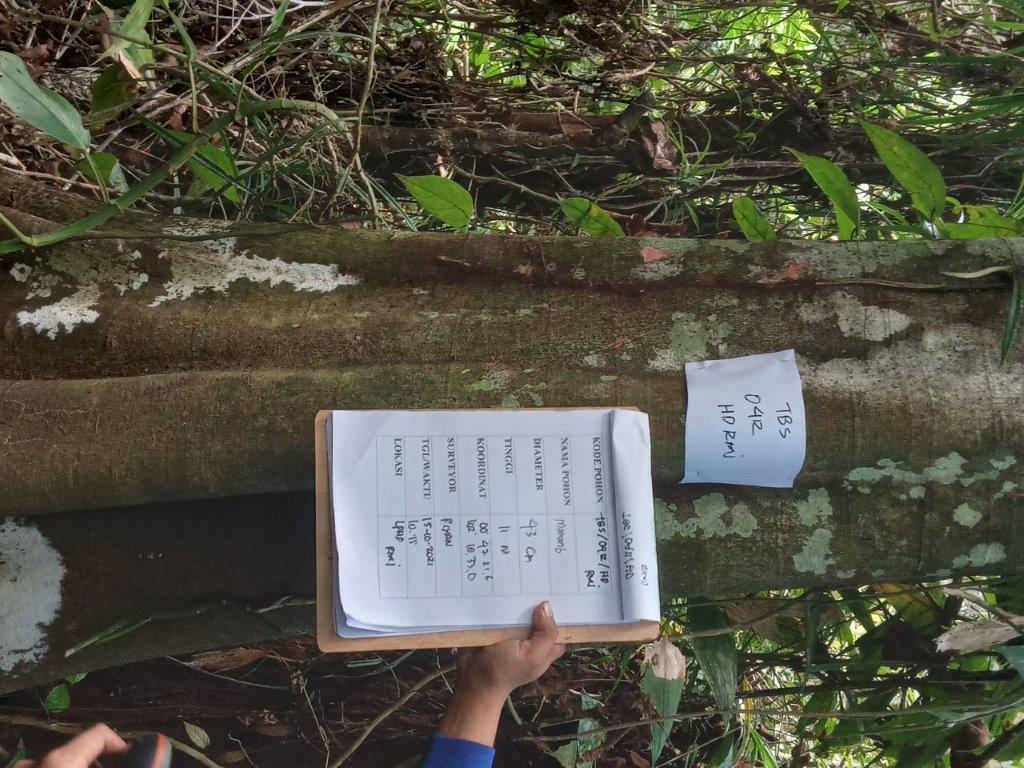 TBS
0912
HD RMJ
KODE POHON TBS/0912/HD.
RMJ
NAMA POHON
DIAMETER 43 CM
TINGGI 11 M
KOORDINAT 00° 47 21.6
102° 18.33.0
SURVEYOR RIYAN
TGL/WAKTU 15-10-2021
10.45
LOKASI LPHD
RMJ